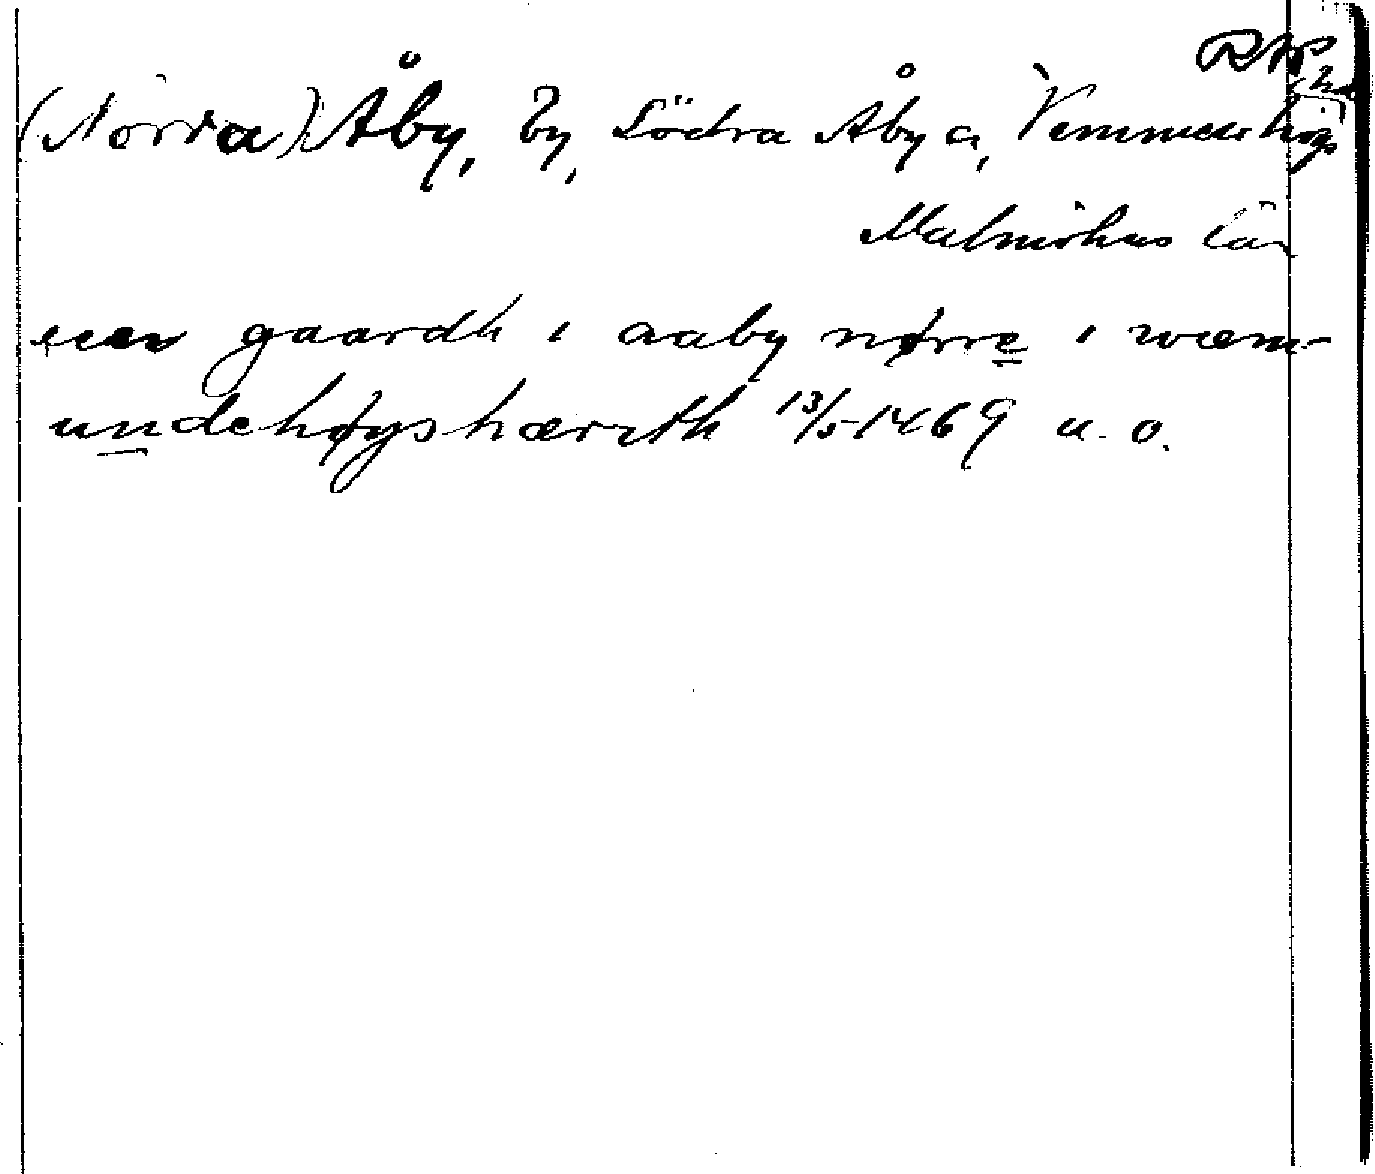 RAP
(Norra) Åby, by, Södra Åby a, Vemmenhögs hd
Malmöhus län
een gaardh i aaby nørre i wæm-
undehøyshæreth 13/5 1469 u. o.